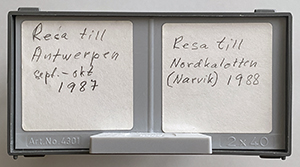 Resa till
Antwerpen
sept.-okt
1987
Resa till
Nordkalotten
(Narvik) 1988
Art.No 4301
2x40